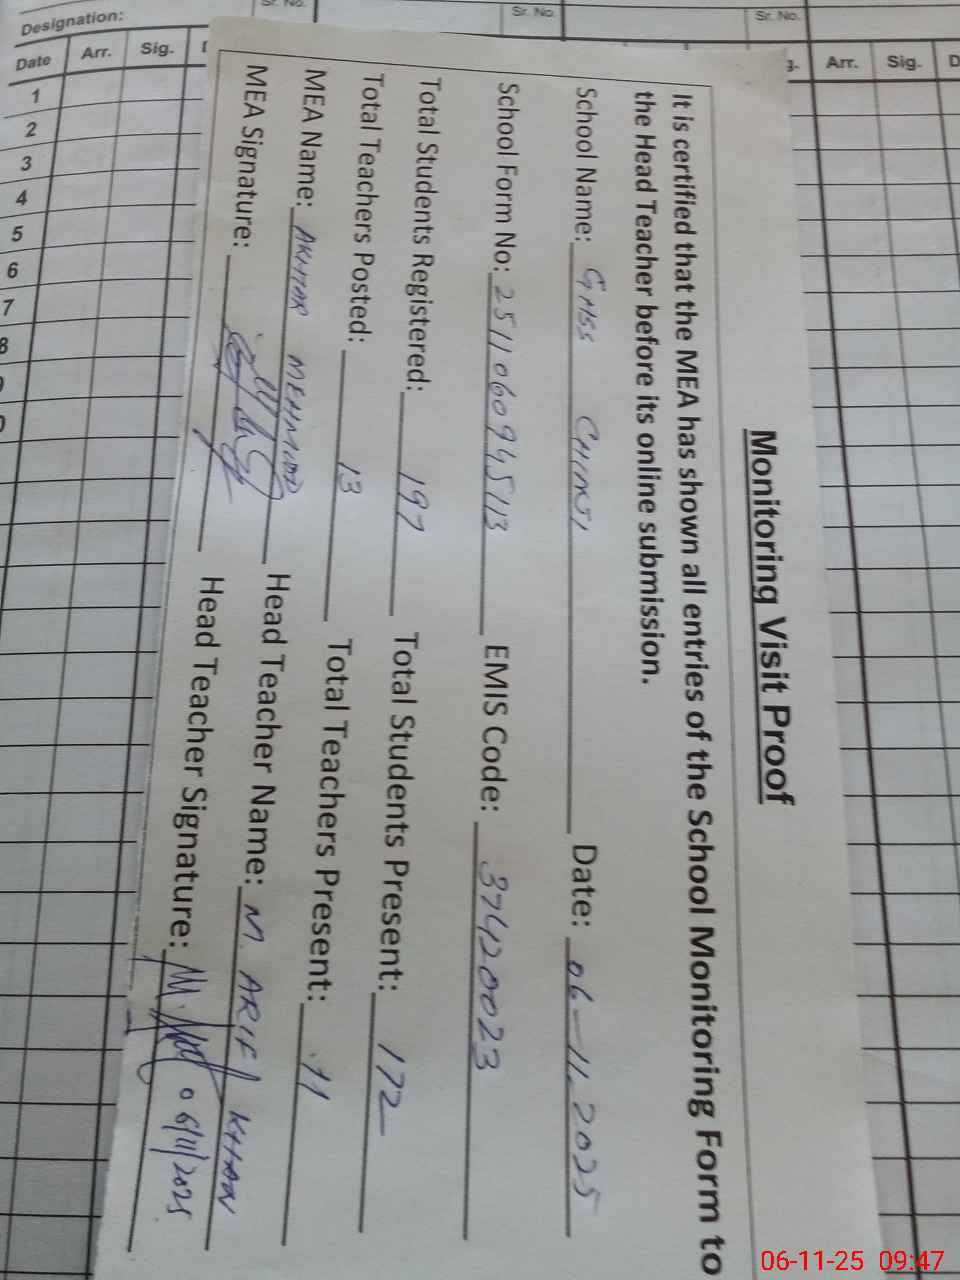 Designation:
Sr. No.
Sr. No.
Sr. No.
Date Arr. Sig. D
Arr. Sig. D
1
2
3
4
5
6
7
8
Monitoring Visit Proof
It is certified that the MEA has shown all entries of the School Monitoring Form to
the Head Teacher before its online submission.
School Name: GHSS CHINSI Date: 06-11-2025
School Form No: 2511060945113 EMIS Code: 37420023
Total Students Registered: 197 Total Students Present: 172
Total Teachers Posted: 13 Total Teachers Present: 11
MEA Name: AKHTAR MEHMOOD Head Teacher Name: M. ARIF KHAN
MEA Signature: Head Teacher Signature: 06/11/2025
06-11-25 09:47